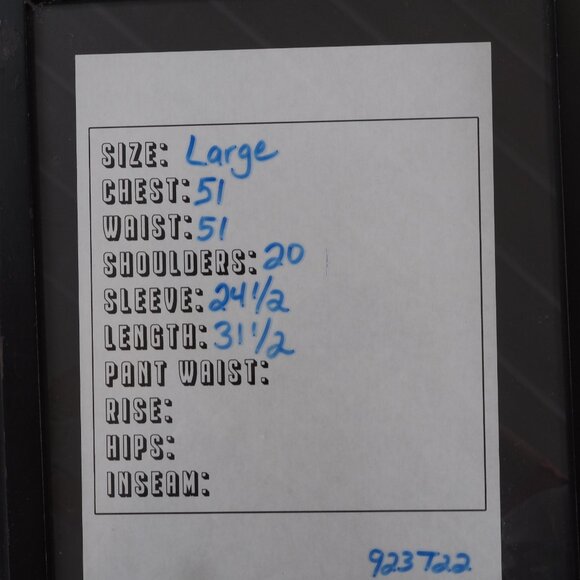 SIZE: Large
CHEST: 51
WAIST: 51
SHOULDERS: 20
SLEEVE: 24 1/2
LENGTH: 31 1/2
PANT WAIST:
RISE:
HIPS:
INSEAM:
923T22